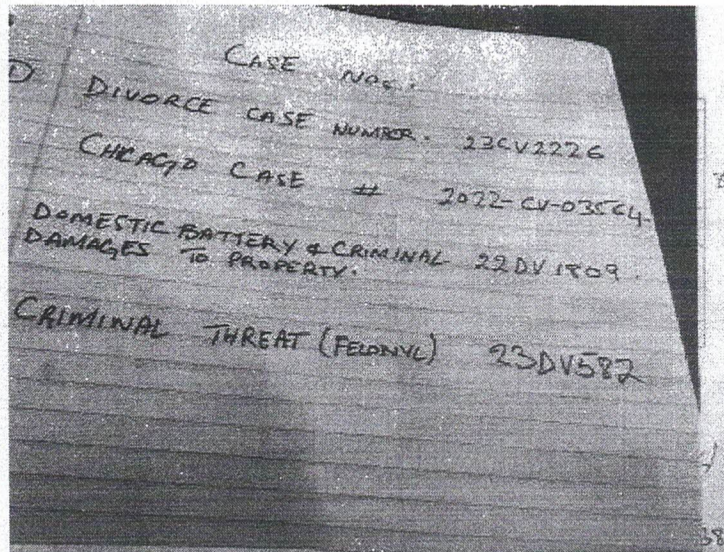 CASE NOS.
① DIVORCE CASE NUMBER. 23CV2226
CHICAGO CASE # 2022-CV-03564-
DOMESTIC BATTERY & CRIMINAL 22DV1809.
DAMAGES TO PROPERTY.
CRIMINAL THREAT (FELONYL) 23DV587
38